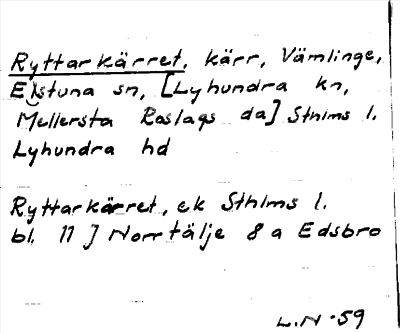 Ryttarkärret, kärr, Vämlinge,
Estuna sn, [Lyhundra kn,
Mellersta Roslags da] Sthlms l.
Lyhundra hd
Ryttarkärret, ek Sthlms l.
bl. 11 ] Norrtälje 8 a Edsbro
L.N -59